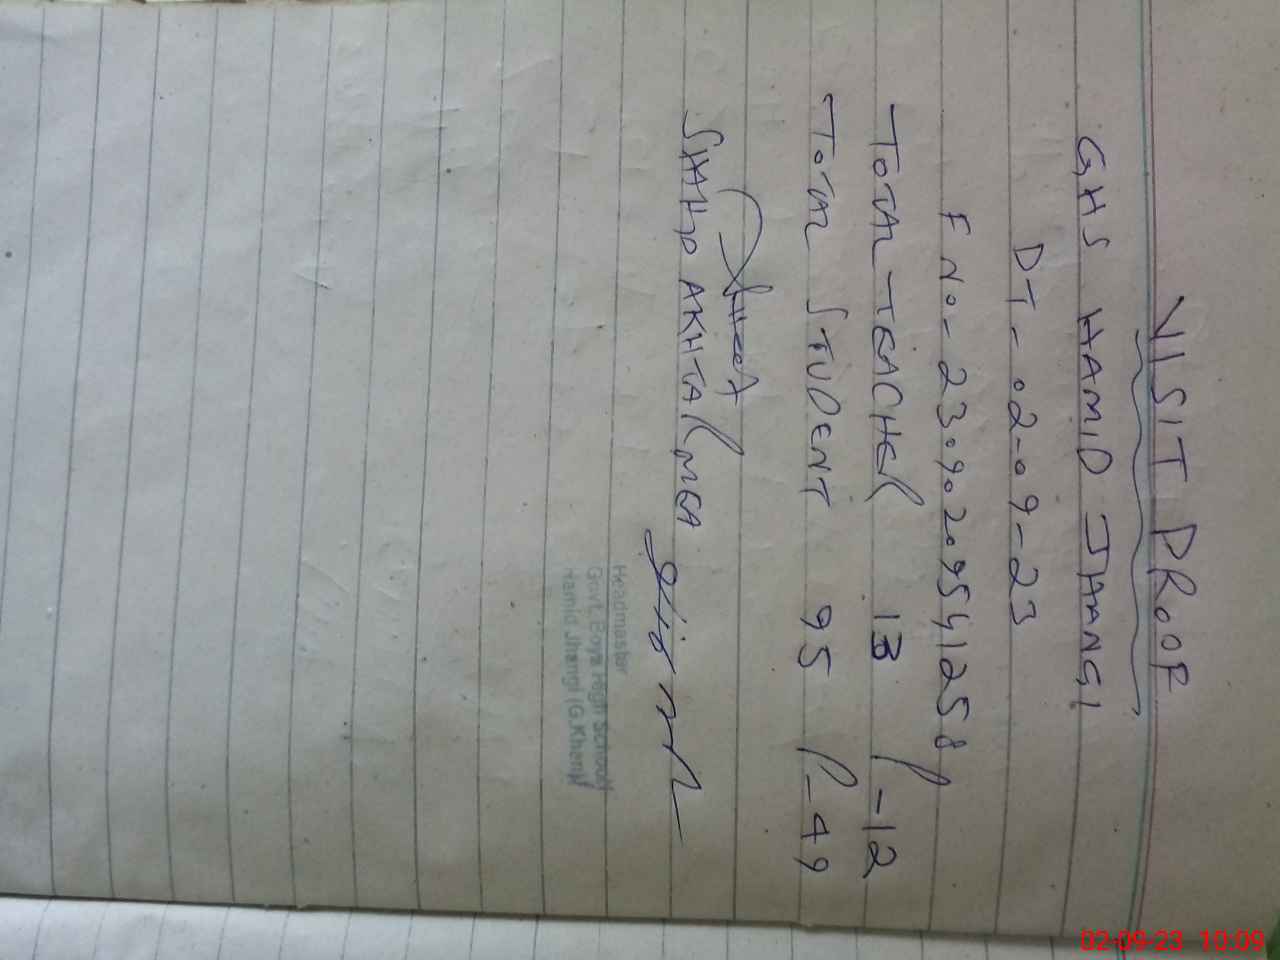 VISIT PROOF
GHS HAMID JHANGI
DT - 02-09-23
F No - 23090209541258
TOTAL TEACHER 13 P-12
TOTAL STUDENT 95 P-49
SHAHID AKHTAR MEA
Headmaster
Govt. Boys High School
Hamid Jhangi (G.Khan)
02-09-23 10:09